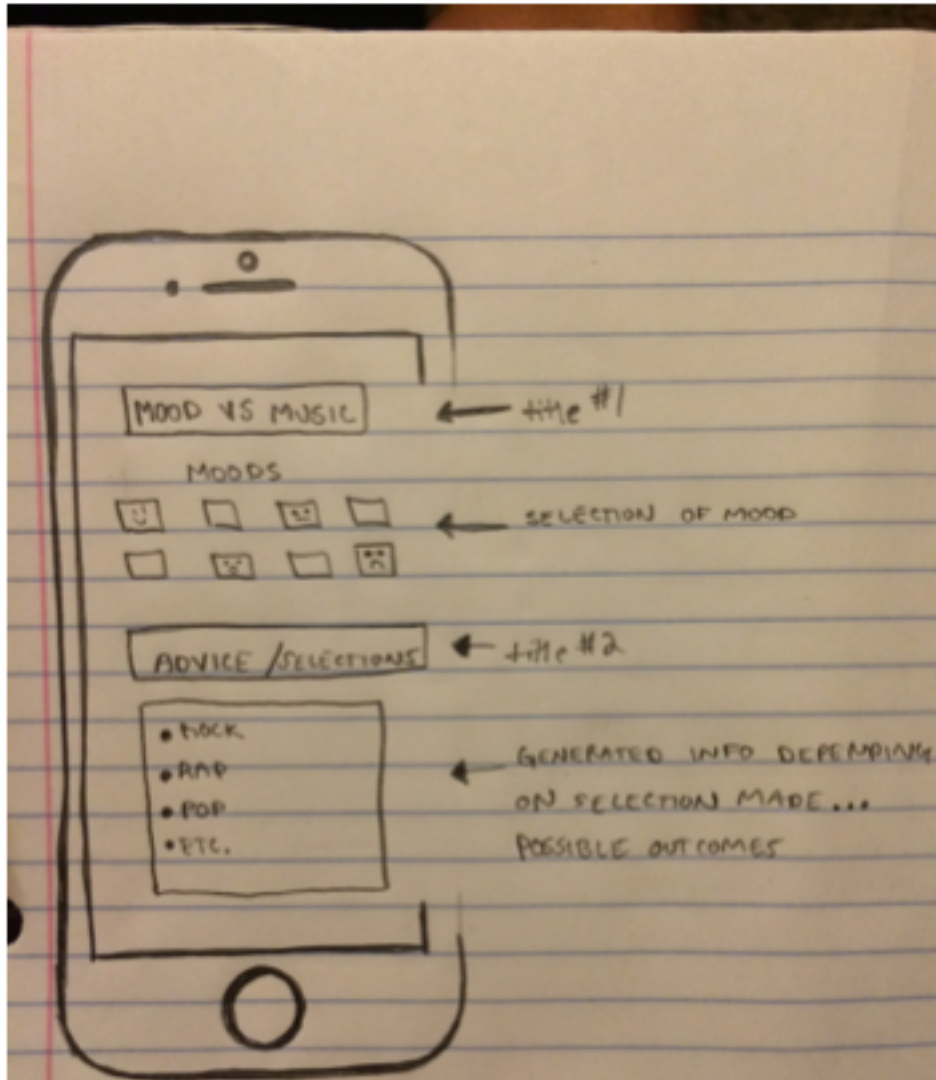 MOOD VS MUSIC
title #1
MOODS
SELECTION OF MOOD
ADVICE /SELECTIONS
title #2
• ROCK
• RAP
• POP
• ETC.
GENERATED INFO DEPENDING
ON SELECTION MADE...
POSSIBLE OUTCOMES